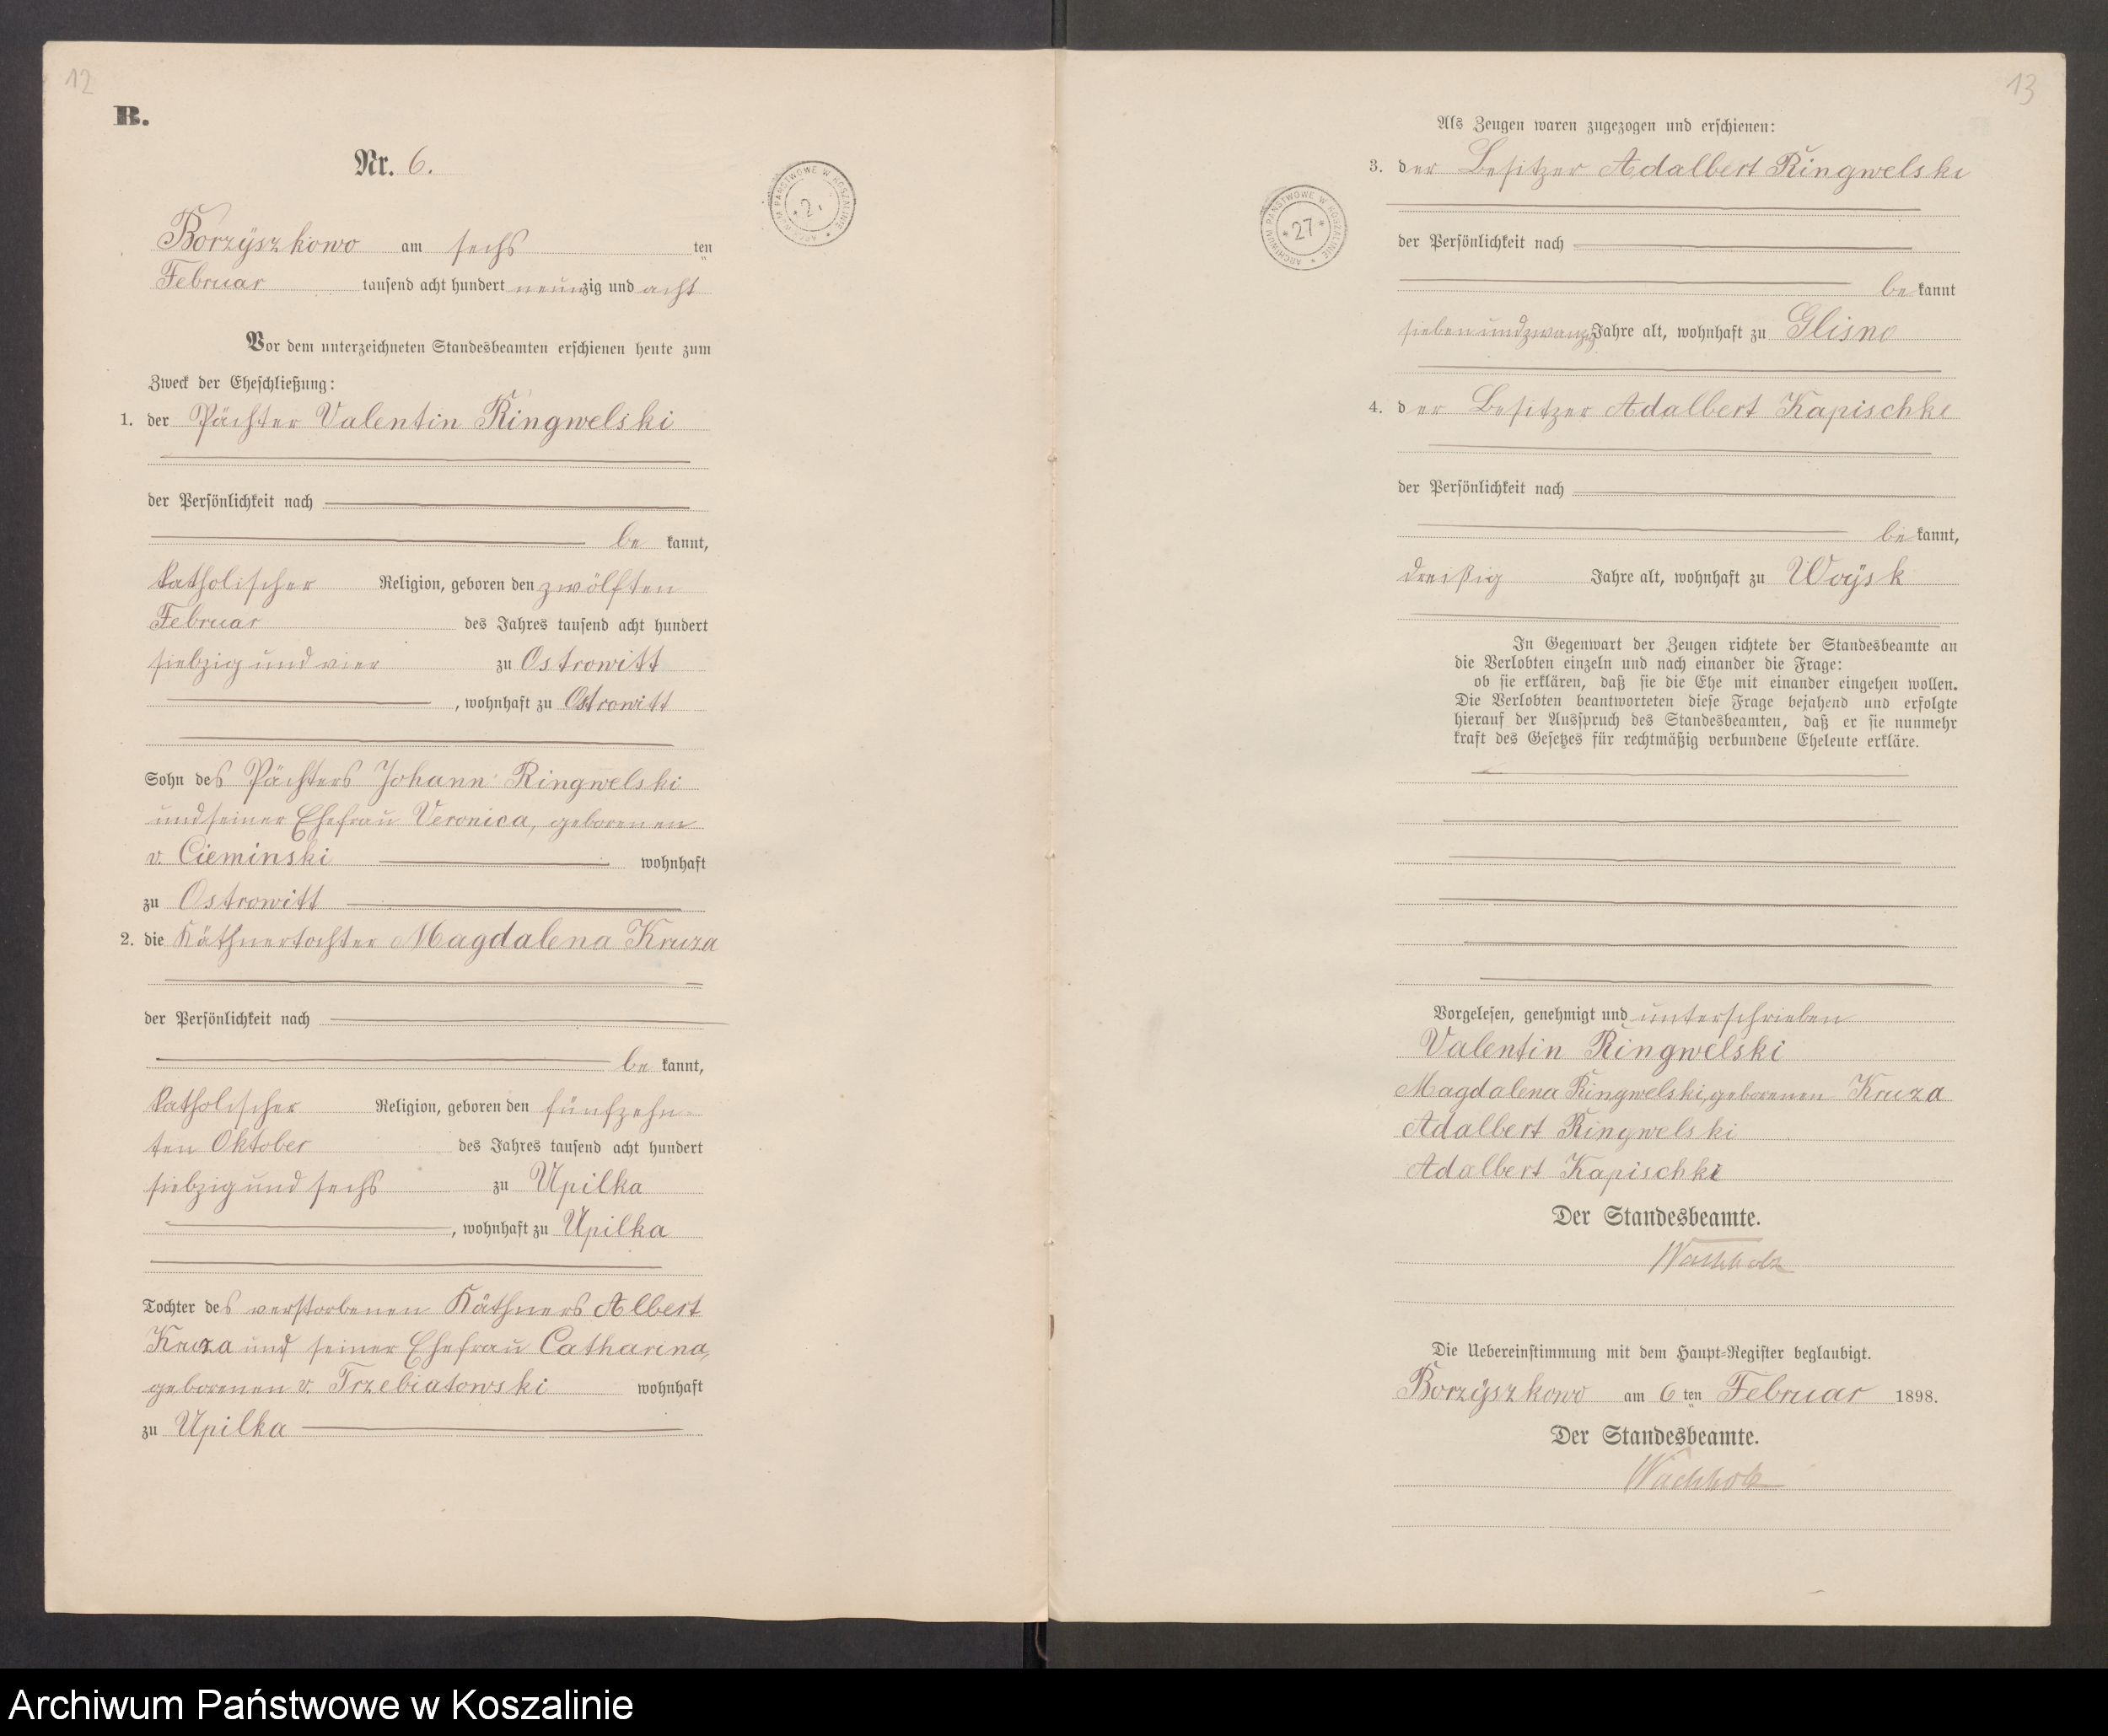 12
B.
Nr. 6.
Borzÿszkowo am sechs ten
Februar tausend acht hundert neunzig und acht
Vor dem unterzeichneten Standesbeamten erschienen heute zum
Zweck der Eheschließung:
1. der Pächter Valentin Ringwelski
der Persönlichkeit nach
be kannt,
katholischer Religion, geboren den zwölften
Februar des Jahres tausend acht hundert
siebzig und vier zu Ostrowitt
, wohnhaft zu Ostrowitt
Sohn des Pächters Johann Ringwelski
und seiner Ehefrau Veronica, geborenen
v. Cieminski wohnhaft
zu Ostrowitt
2. die Käthnertochter Magdalena Kruza
der Persönlichkeit nach
be kannt,
katholischer Religion, geboren den fünfzehn-
ten Oktober des Jahres tausend acht hundert
siebzig und sechs zu Upilka
, wohnhaft zu Upilka
Tochter des verstorbenen Käthners Albert
Kruza und seiner Ehefrau Catharina,
geborenen v. Trzebiatowski wohnhaft
zu Upilka
ARCHIWUM PAŃSTWOWE W KOSZALINIE
13
Als Zeugen waren zugezogen und erschienen:
3. der Besitzer Adalbert Ringwelski
ARCHIWUM PAŃSTWOWE W KOSZALINIE * 27 *
der Persönlichkeit nach
be kannt
siebenundzwanzig Jahre alt, wohnhaft zu Glisno
4. der Besitzer Adalbert Kapischke
der Persönlichkeit nach
be kannt,
dreißig Jahre alt, wohnhaft zu Woÿsk
In Gegenwart der Zeugen richtete der Standesbeamte an
die Verlobten einzeln und nach einander die Frage:
ob sie erklären, daß sie die Ehe mit einander eingehen wollen.
Die Verlobten beantworteten diese Frage bejahend und erfolgte
hierauf der Ausspruch des Standesbeamten, daß er sie nunmehr
kraft des Gesetzes für rechtmäßig verbundene Eheleute erkläre.
Vorgelesen, genehmigt und unterschrieben
Valentin Ringwelski
Magdalena Ringwelski, geborenen Kruza
Adalbert Ringwelski
Adalbert Kapischke
Der Standesbeamte.
Wachholz
Die Uebereinstimmung mit dem Haupt-Register beglaubigt.
Borzÿszkowo am 6 ten Februar 1898.
Der Standesbeamte.
Wachholz
Archiwum Państwowe w Koszalinie